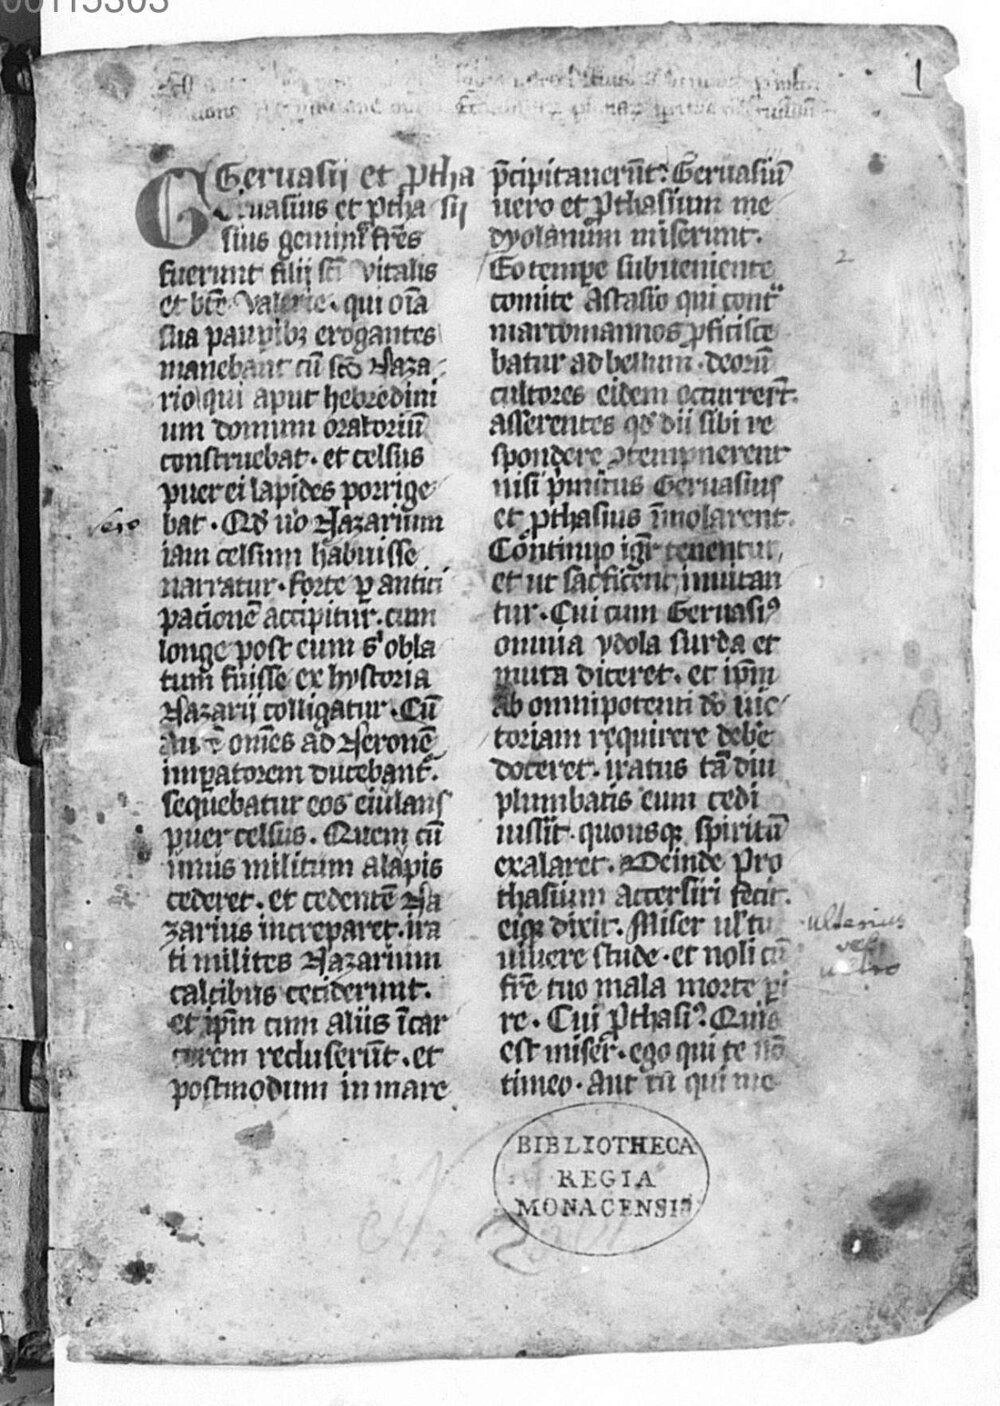 00115303
1
Geruasij et ꝓtha
sij
Geruasius et ꝓtha
sius gemini fr̄es
fuerunt filij sc̄i vitalis
et bt̄e Valerie · qui oīa
sua paupibꝫ erogantes
manebant cū sc̄o Naza
rio qui aput hebredini
um domum oratoriū
construebat · et celsus
puer ei lapides porrige
bat · Qd̄ uo Nazarium
iam celsum habuisse
narratur · forte ꝑ antici
pacionē accipitur · cum
longe post eum s' obla
tum fuisse ex hystoria
Nazarij colligatur · Cū
aut̄ om̄es ad Neronē
impatorem ducebant̄ ·
sequebatur eos eiulans
puer celsus · Quem cū
unus militum alapis
cederet · et cedentē Na
zarius increparet · ira
ti milites Nazarium
calcibus ceciderunt ·
et ip̄m cum aliis īcar
cerem recluserūt · et
postmodum in mare
vero
p̄cipitauerūt · Geruasiū
uero et ꝓthasium me
dyolanum miserunt ·
Eo tempe subueniente
comite Astasio qui cont
marcomannos ꝓficisce
batur ad bellum · deorū
cultores eidem occurrer̄t ·
asserentes qd̄ dii sibi re
spondere ꝯtempnerent
nisi p̄mitus Geruasius
et ꝓthasius īmolarent ·
Continuo igr̄ tenentur,
et ut sac̄ficent inuitan
tur · Cui cum Geruasiꝰ
omnia ydola surda et
muta diceret · et ip̄m
ab omnipotenti dō uic
toriam requirere deb̄e
doceret · iratus tā diu
plumbatis eum cedi
iussit · quousqꝫ spiritū
exalaret · Deinde Pro
thasium accersiri fecit ·
eiqꝫ dixit · Miser ul̄tu
uiuere stude · et noli cū
fr̄e tuo mala morte ꝑi
re · Cui ꝓthasiꝰ · Quis
est miser · ego qui te nō
timeo · aut tu qui me
2
ulterius
vel
ultro
BIBLIOTHECA
REGIA
MONACENSIS